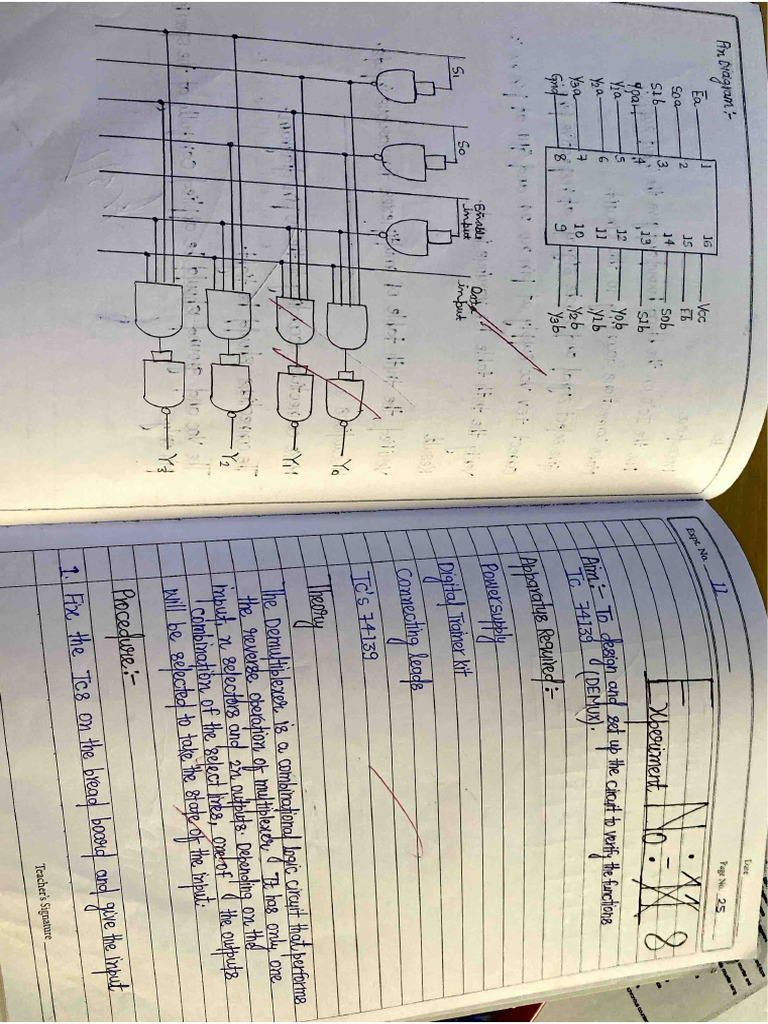 Pin Diagram:-
Ea 1 16 Vcc
S0a 2 15 Eb
S1b 3 14 S0b
4 13 S1b
Y1a 5 12 Y0b
Y2a 6 11 Y1b
Y3a 7 10 Y2b
Gnd 8 9 Y3b
S1
S0
Enable
Input
Data
input
Y0
Y1
Y2
Y3
Date
Expt. No. 11
Page No. 25
Experiment No:- 8
Aim:- To design and set up the circuit to verify the functions
Ic 74139 (DEMUX).
Apparatus Required:-
Power supply
Digital Trainer kit
Connecting leads
IC's 74139
Theory
The Demultiplexer is a combinational logic circuit that performs
the reverse operation of multiplexer. It has only one
input, n selectors and 2n outputs. Depending on the
combination of the select lines, one of the outputs
will be selected to take the state of the input.
Procedure:-
1. Fix the ICs on the bread board and give the input
Teacher's Signature